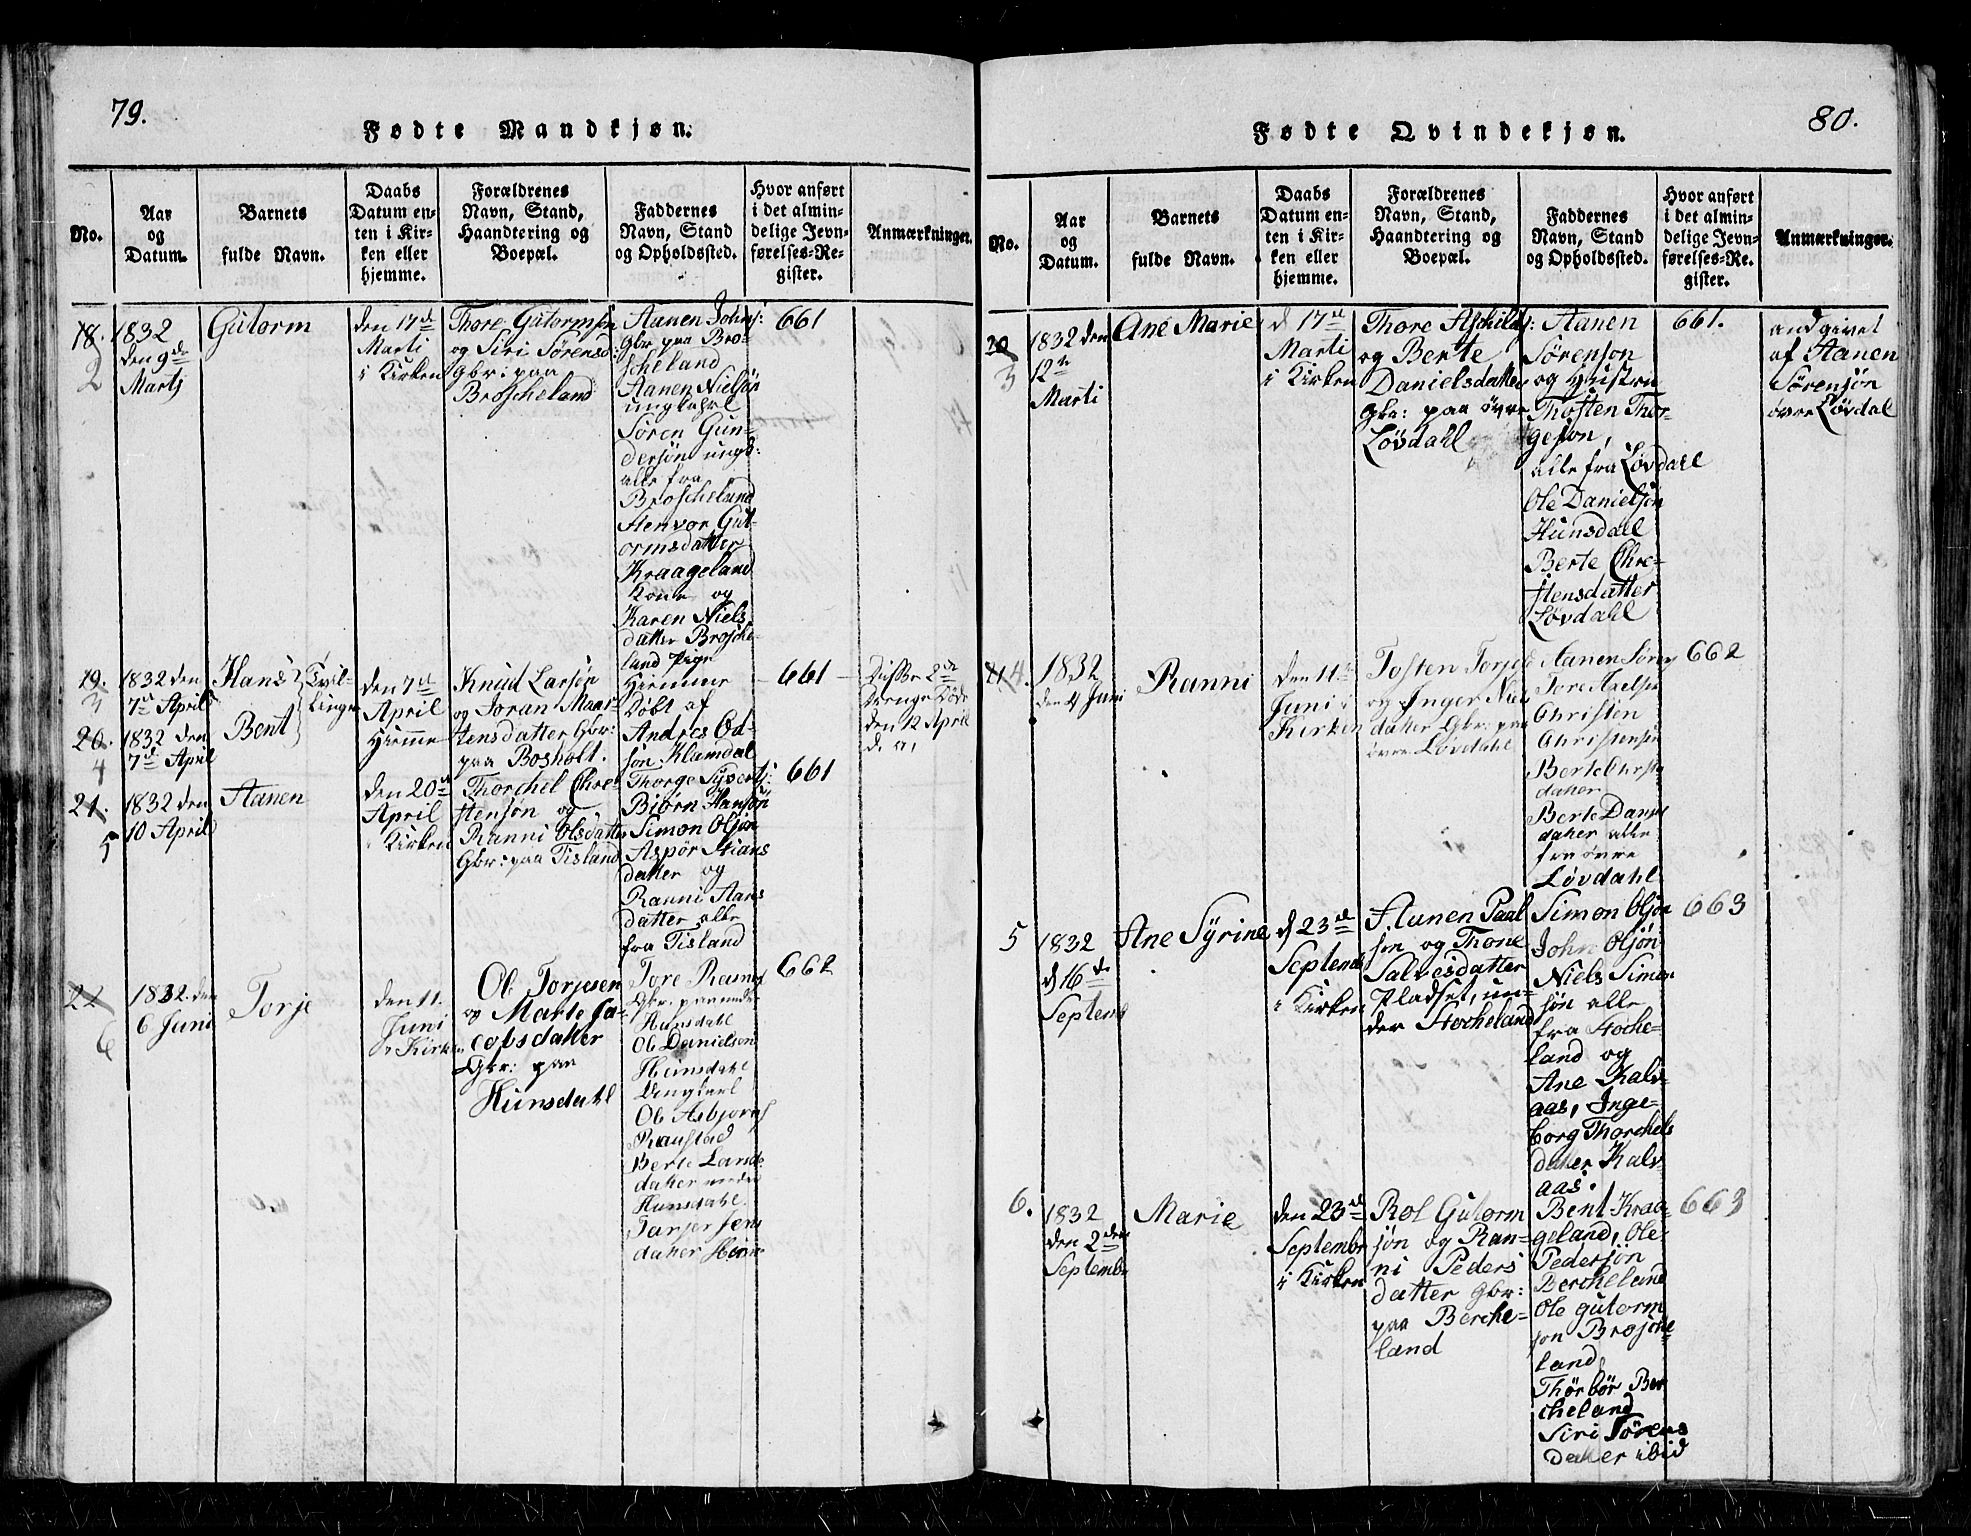 79.
Fødte Mandkjøn.
No.
Aar
og
Datum.
Barnets
fulde Navn.
Daabs
Datum en-
ten i Kir-
ken eller
hjemme.
Forældrenes
Navn, Stand,
Haandtering og
Boepæl.
Faddernes
Navn, Stand
og Opholdssted.
Hvor anført
i det almin-
delige Jevn-
førelses-Re-
gister.
Anmærkninger.
18.
2
1832
den 9de
Marts
Gutorm
den 17de
Marti
i Kirken
Thore Gutormsen
og Siri Sørensd:
gbr: paa
Broscheland
Aanen Johns:
Gbr paa Bro-
scheland
Aanen Nielsøn
ungkahrl
Søren Gun-
dersøn ungk:
alle fra
Broscheland
Stenvor Gut-
ormsdatter
Kraageland
Kone og
Karen Niels
datter Brosche-
land Pige
661
19.
3
1832 den
7de April
Hans
Tvil-
linger
20.
4
1832 den
7de April
Bent
den 7de
April
Hiemme
Knud Larsøn
og Joran Maar-
tensdatter Gbr:
paa Bosholt.
Hiemme
Døbt af
Andres Od-
søn Klamdal
661
Disse 2de
Drenge Døde
den 12 April
21.
5
1832 den
10 April
Aanen
den 20de
April
i Kirken
Thorchel Chre-
stensøn og
Ranni Olsdatter
Gbr: paa Tisland
Thorge Syverts:
Biørn Hansøn
Simon Olsøn
Aspør Stians
datter og
Ranni Aans
datter alle
fra Tisland
661
22
6
1832. den
6 Juni
Torje
den 11.
Juni
i Kirken
Ole Torjusen
og Marte Ja-
cobsdatter
Gbr: paa
Hunsdahl
Tore Rasmus
Gbr. paa nedre
Hunsdahl
Ole Danielsen
Hunsdahl
Ungkarl
Ole Asbjorns
Raustad
Berte Lands
datter nedre
Hunsdahl.
Tarjer Jens
datter
662
80.
Fødte Qvindekjøn.
No.
Aar
og
Datum.
Barnets
fulde Navn.
Daabs
Datum en-
ten i Kir-
ken eller
hjemme.
Forældrenes
Navn, Stand,
Haandtering og
Boepæl.
Faddernes
Navn, Stand
og Opholdssted.
Hvor anført
i det almin-
delige Jevn-
førelses-Re-
gister.
Anmærkninger.
3
1832 den
12te
Marti
Ane Marie
d 17de
Marti
i Kirken
Thore Aschilds:
og Berte
Danielsdatter
gbr: paa øvre
Løvdahl
Aanen
Sørensøn
og Hustru
Thosten Thor-
gesøn,
alle fra Løvdahl
Ole Danielsøn
Hunsdael
Berte Chre-
stensdatter
Løvdahl
661.
andgivet
af Aanen
Sørensøn
øvre Løvdal
4
1832
den 4 Juni
Ranni
den 11te
Juni i
Kirken
Tosten Torjes
og Inger Niels
datter Gbr: paa
øvre Løvdahl
Aanen Søren
Tore Axelsen
Christen
Christensen
Berte Christ
datter
Berte Daniel
datter alle
fra øvre
Løvdahl
662
5
1832
d 16de
Septemb
Ane Syrine
d 23de
Septemb
i Kirken
Aanen Paal
søn og Thone
Salvesdatter
Pladset, un-
der Stocheland
Simon Olsøn
John Olsøn
Niels Simon
søn alle
fra Stoche-
land og
Ane Kalv-
aas, Inge-
borg Thorchels
datter Kalv-
aas.
663
6.
1832
den 2den
Septembr
Marie
den 23de
Septembr
i Kirken
Rol Gutorm
søn og Ran-
ni Peders
datter Gbr:
paa Berche-
land
Bent Kraa-
geland, Ole
Pedersøn
Bercheland
Ole Gutorm
søn Brosche-
land
Thørbør Ber
cheland
Siri Sørens
datter ibid
663